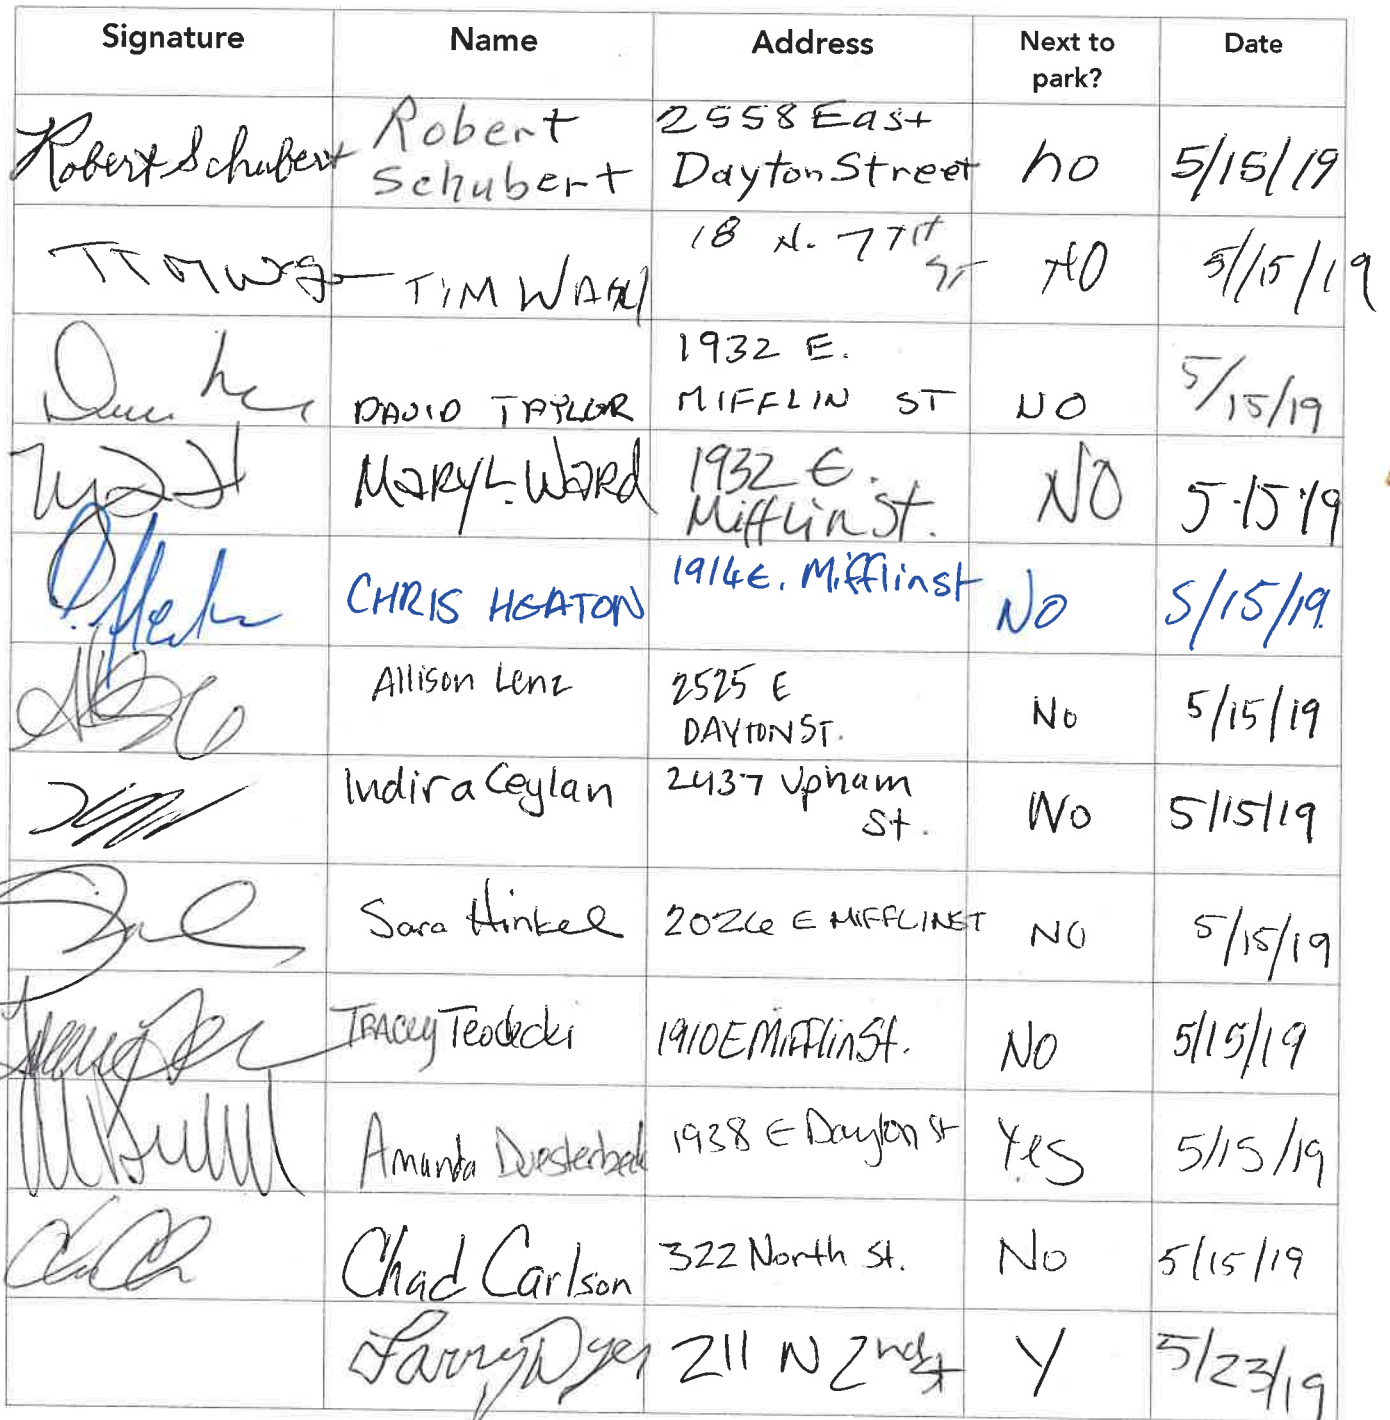 Signature Name Address Next to park? Date
Robert Schubert Robert Schubert 2558 East Dayton Street no 5/15/19
TIM 18 N. ST NO 5/15/19
DAVID TAYLOR 1932 E. MIFFLIN ST NO 5/15/19
MARY L. WARD 1932 E. Mifflin St. NO 5-15-19
CHRIS HEATON 1914 E. Mifflin st NO 5/15/19
Allison Lenz 2525 E DAYTON ST. No 5/15/19
Indira Ceylan 2437 Upham St. No 5/15/19
Sara Hinkel 2026 E MIFFLIN ST NO 5/15/19
TRACEY 1910 E Mifflin St. No 5/15/19
Amanda Duesterbeck 1938 E Dayton st Yes 5/15/19
Chad Carlson 322 North St. No 5/15/19
Larry Dyer 211 N 2nd St Y 5/23/19